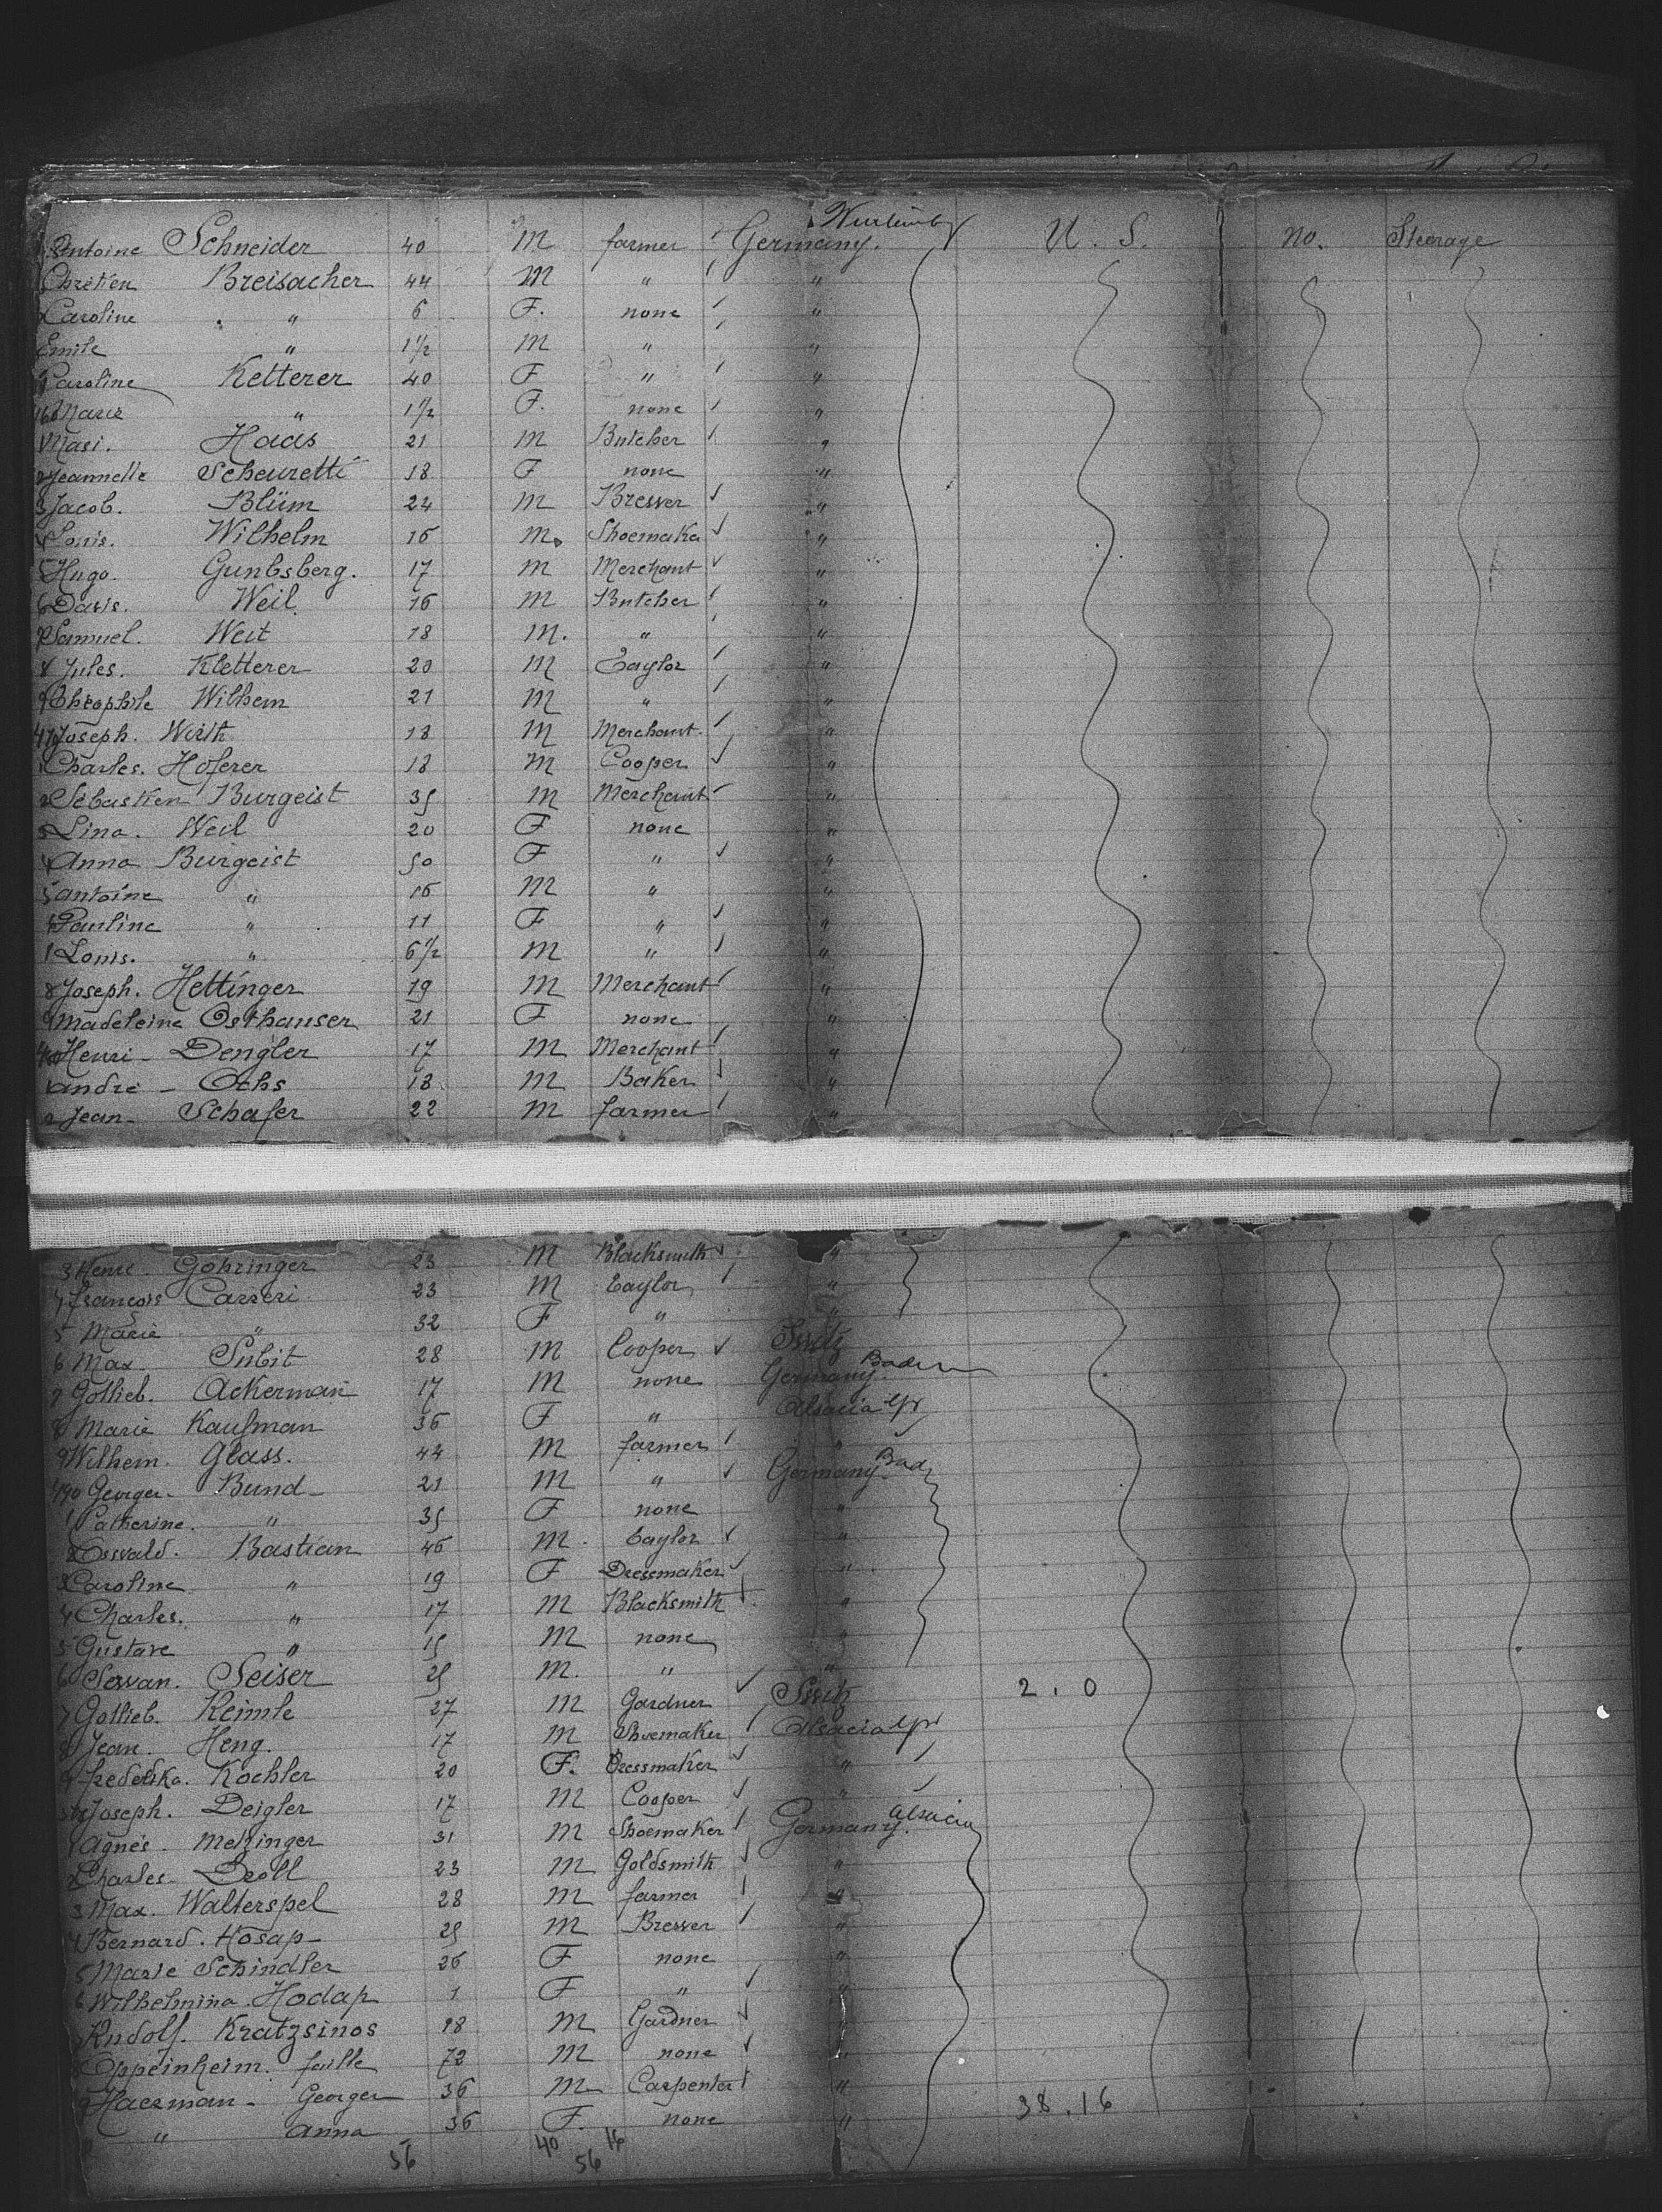 Antoine Schneider 40 M farmer Germany. Wurtemb U. S. no. Steerage
Chretien Breisacher 44 M " "
Caroline " 6 F. none "
Emile " 1½ M " "
Caroline Ketterer 40 F " "
Marie " 1½ F. none "
1 Maxi. Haas 21 M Butcher "
2 Jeannette Scheuretti 18 F none "
3 Jacob. Blüm 24 M Bresser "
4 Louis. Wilhelm 16 M. Shoemaka "
5 Hugo. Gunbsberg. 17 M Merchant "
6 Davis. Weil 16 M Butcher "
7 Samuel. Weit 18 M. " "
8 Jules. Kletterer 20 M Taylor "
9 Théophile Wilhem 21 M " "
Joseph. Wirth 18 M Merchant. "
1 Charles. Hoferer 18 M Cooper "
2 Sebastien Burgeist 35 M Merchant "
3 Lina. Weil 20 F none "
4 Anna Burgeist 50 F " "
5 Antoine " 16 M " "
6 Pauline " 11 F " "
Louis. " 6½ M " "
8 Joseph. Hettinger 19 M Merchant "
9 Madeleine Osthauser 21 F none "
Henri - Dengler 17 M Merchant "
1 André - Ochs 18 M Baker "
2 Jean - Schafer 22 M farmer "
3 Henri Gohringer 23 M Blacksmith "
4 François Carreri 23 M Taylor "
5 Marie " 32 F " "
6 Max Subit 28 M Cooper Switz
7 Gotlieb. Ackerman 17 M none Germany. Baden
8 Marie Kaufman 36 F " Alsacia
9 Wilhem. Glass. 44 M farmer "
490 Georger - Bund - 21 M " Germany. Bad
1 Catherine. " 35 F none "
2 Osswald. Bastian 46 M. Taylor "
3 Caroline " 19 F Dressmaker "
4 Charles. " 17 M Blacksmith "
5 Gustave " 15 M none "
6 Servan. Seiser 25 M. " "
7 Gotlieb. Keimle 27 M Gardner Switz 2.0
8 Jean. Heng. 17 M Shoemaker Alsacia
9 frederika. Kochler 20 F. Dressmaker "
Joseph. Deigler 17 M Cooper "
1 Agnés - Metzinger 31 M Shoemaker Germany. Alsacia
2 Charles - Droll 23 M Goldsmith "
3 Max. Walterspel 28 M farmer "
4 Bernard. Hosap - 25 M Bresser "
5 Marie Schindler 26 F none "
6 Wilhelmina. Hodap 1 F " "
7 Rudolf. Kratzsinos 18 M Gardner "
8 Oppeinheim. faille 72 M none "
9 Haerman - Georger 36 M Carpenter "
" Anna 36 F. none " 38.16
56 40 16
56